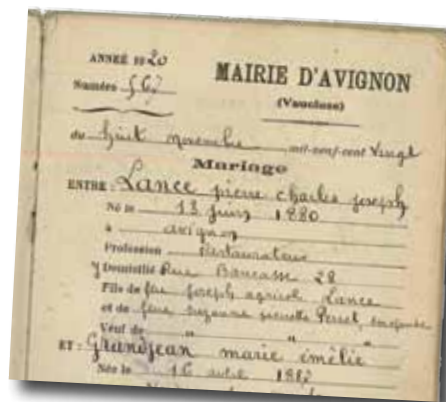 ANNEÉ 1920
MAIRIE D'AVIGNON
Numéro 567
(Vaucluse)
du huit novembre mil-neuf-cent vingt
Mariage
ENTRE : Lance pierre charles joseph
Né le 13 juin 1880
à avignon
Profession restaurateur
Domicilié Rue Bancasse 28
Fils de feu joseph agricol Lance
et de feue suzanne pierrette
Veuf de " " "
ET : Grandjean marie émélie
Née le 16 1882